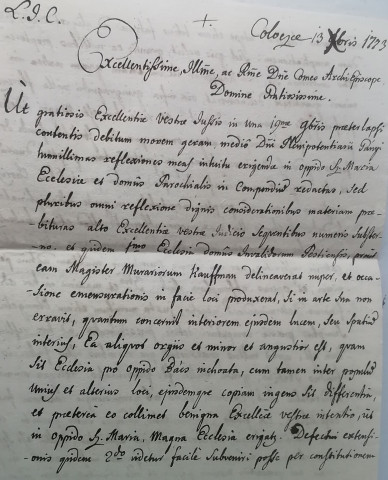 L. J. C.
Coloczæ 13 Xbris 1773
Excellentissime, Illme, ac Rme Dne Comes Archi Episcope
Domine Gratiosissime.
Ut
gratiosis Excellentiæ Vestræ Jussis in una 19næ 9bris præterlapsi
contentis debitum morem geram medio Dni Plenipotentiarii
humillimas reflexiones meas intuitu erigendæ in oppido Sz. Maria
Ecclesiæ et domûs Parochialis in Compendium redactas, sed
pluribus omni reflexione dignis considerationibus materiam præ-
bituras alto Excellentiæ vestræ Judicio sequentibus numeris subster-
no. et quidem 1mo Ecclesia domûs Invalidorum Pestiensis, prout
eam Magister Murariorum Kauffman delineaverat nuper, et occa-
sione emensurationis in facie loci produxerat, si in arte sua non
erravit, quantum concernit interiorem ejusdem lucem, seu spatium
interius. Ea aliquot orgiis et minor et angustior est, quam
sit Ecclesia pro oppido Bács inchoata, cum tamen inter populum
Unius et alterius loci, ejusdemque copiam ingens sit differentia,
et præterea eo collimet benigna Excellæ vestræ intentio, ut
in oppido Sz. Maria, Magna Ecclesia erigatr. Defectui extensi-
onis quidem 2do videtur facile subveniri posse per constitutionem